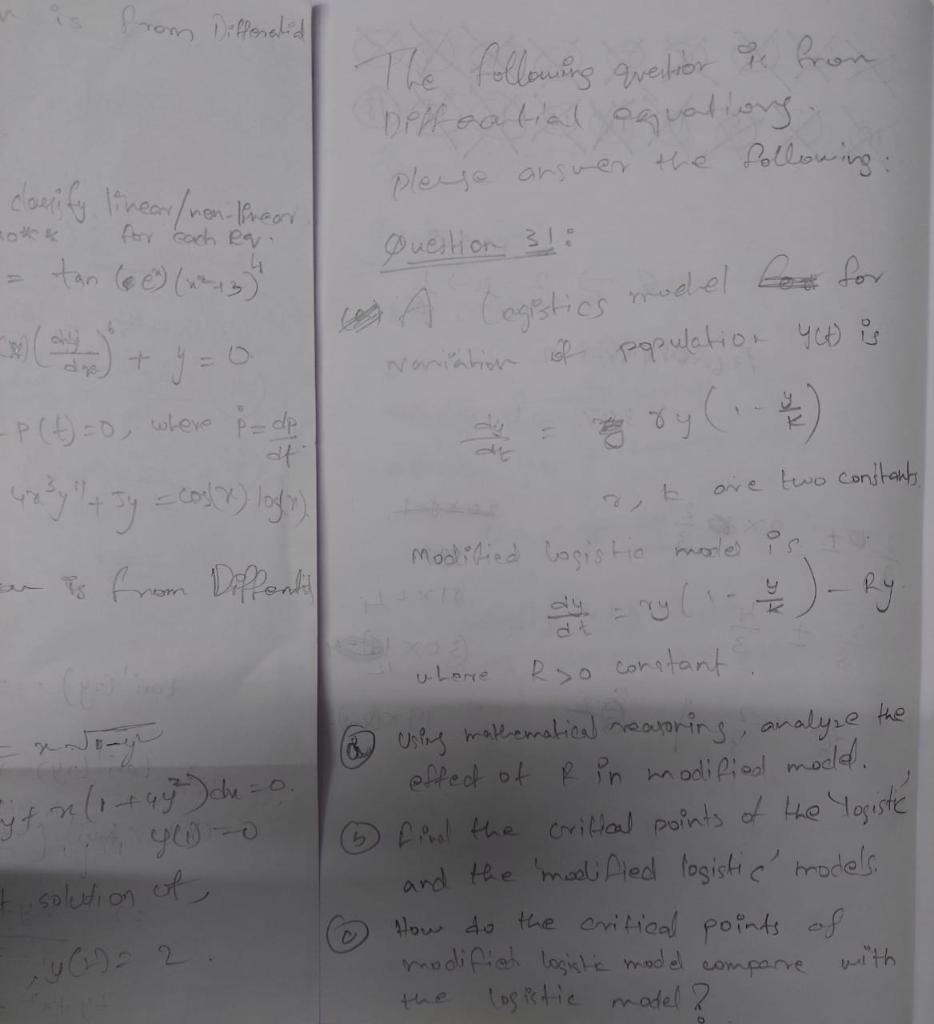 is from Differential
classify linear/non-linear
for each eq.
= tan (e^x) (x²+3)^4
(dy/dx)^6 + y = 0
P(t)=0, where ṗ = dp/dt
4x³y'' + 5y = cos(x) log(x)
is from Differenti
= x √1-y²
y + x(1+4y²)dx = 0.
y(1) = 0
solution of,
, y(2) = 2.
The following question is from
Differential equations.
please answer the following:
Question 31:
A logistics model for
variation of population y(t) is
dy/dt = ry(1 - y/k)
r, k are two constants
Modified logistic model is
dy/dt = ry(1 - y/k) - Ry
where R>0 constant.
(a) Using mathematical reasoning, analyze the
effect of R in modified model.
(b) Find the critical points of the 'logistic'
and the 'modified logistic' models.
(c) How do the critical points of
modified logistic model compare with
the logistic model?